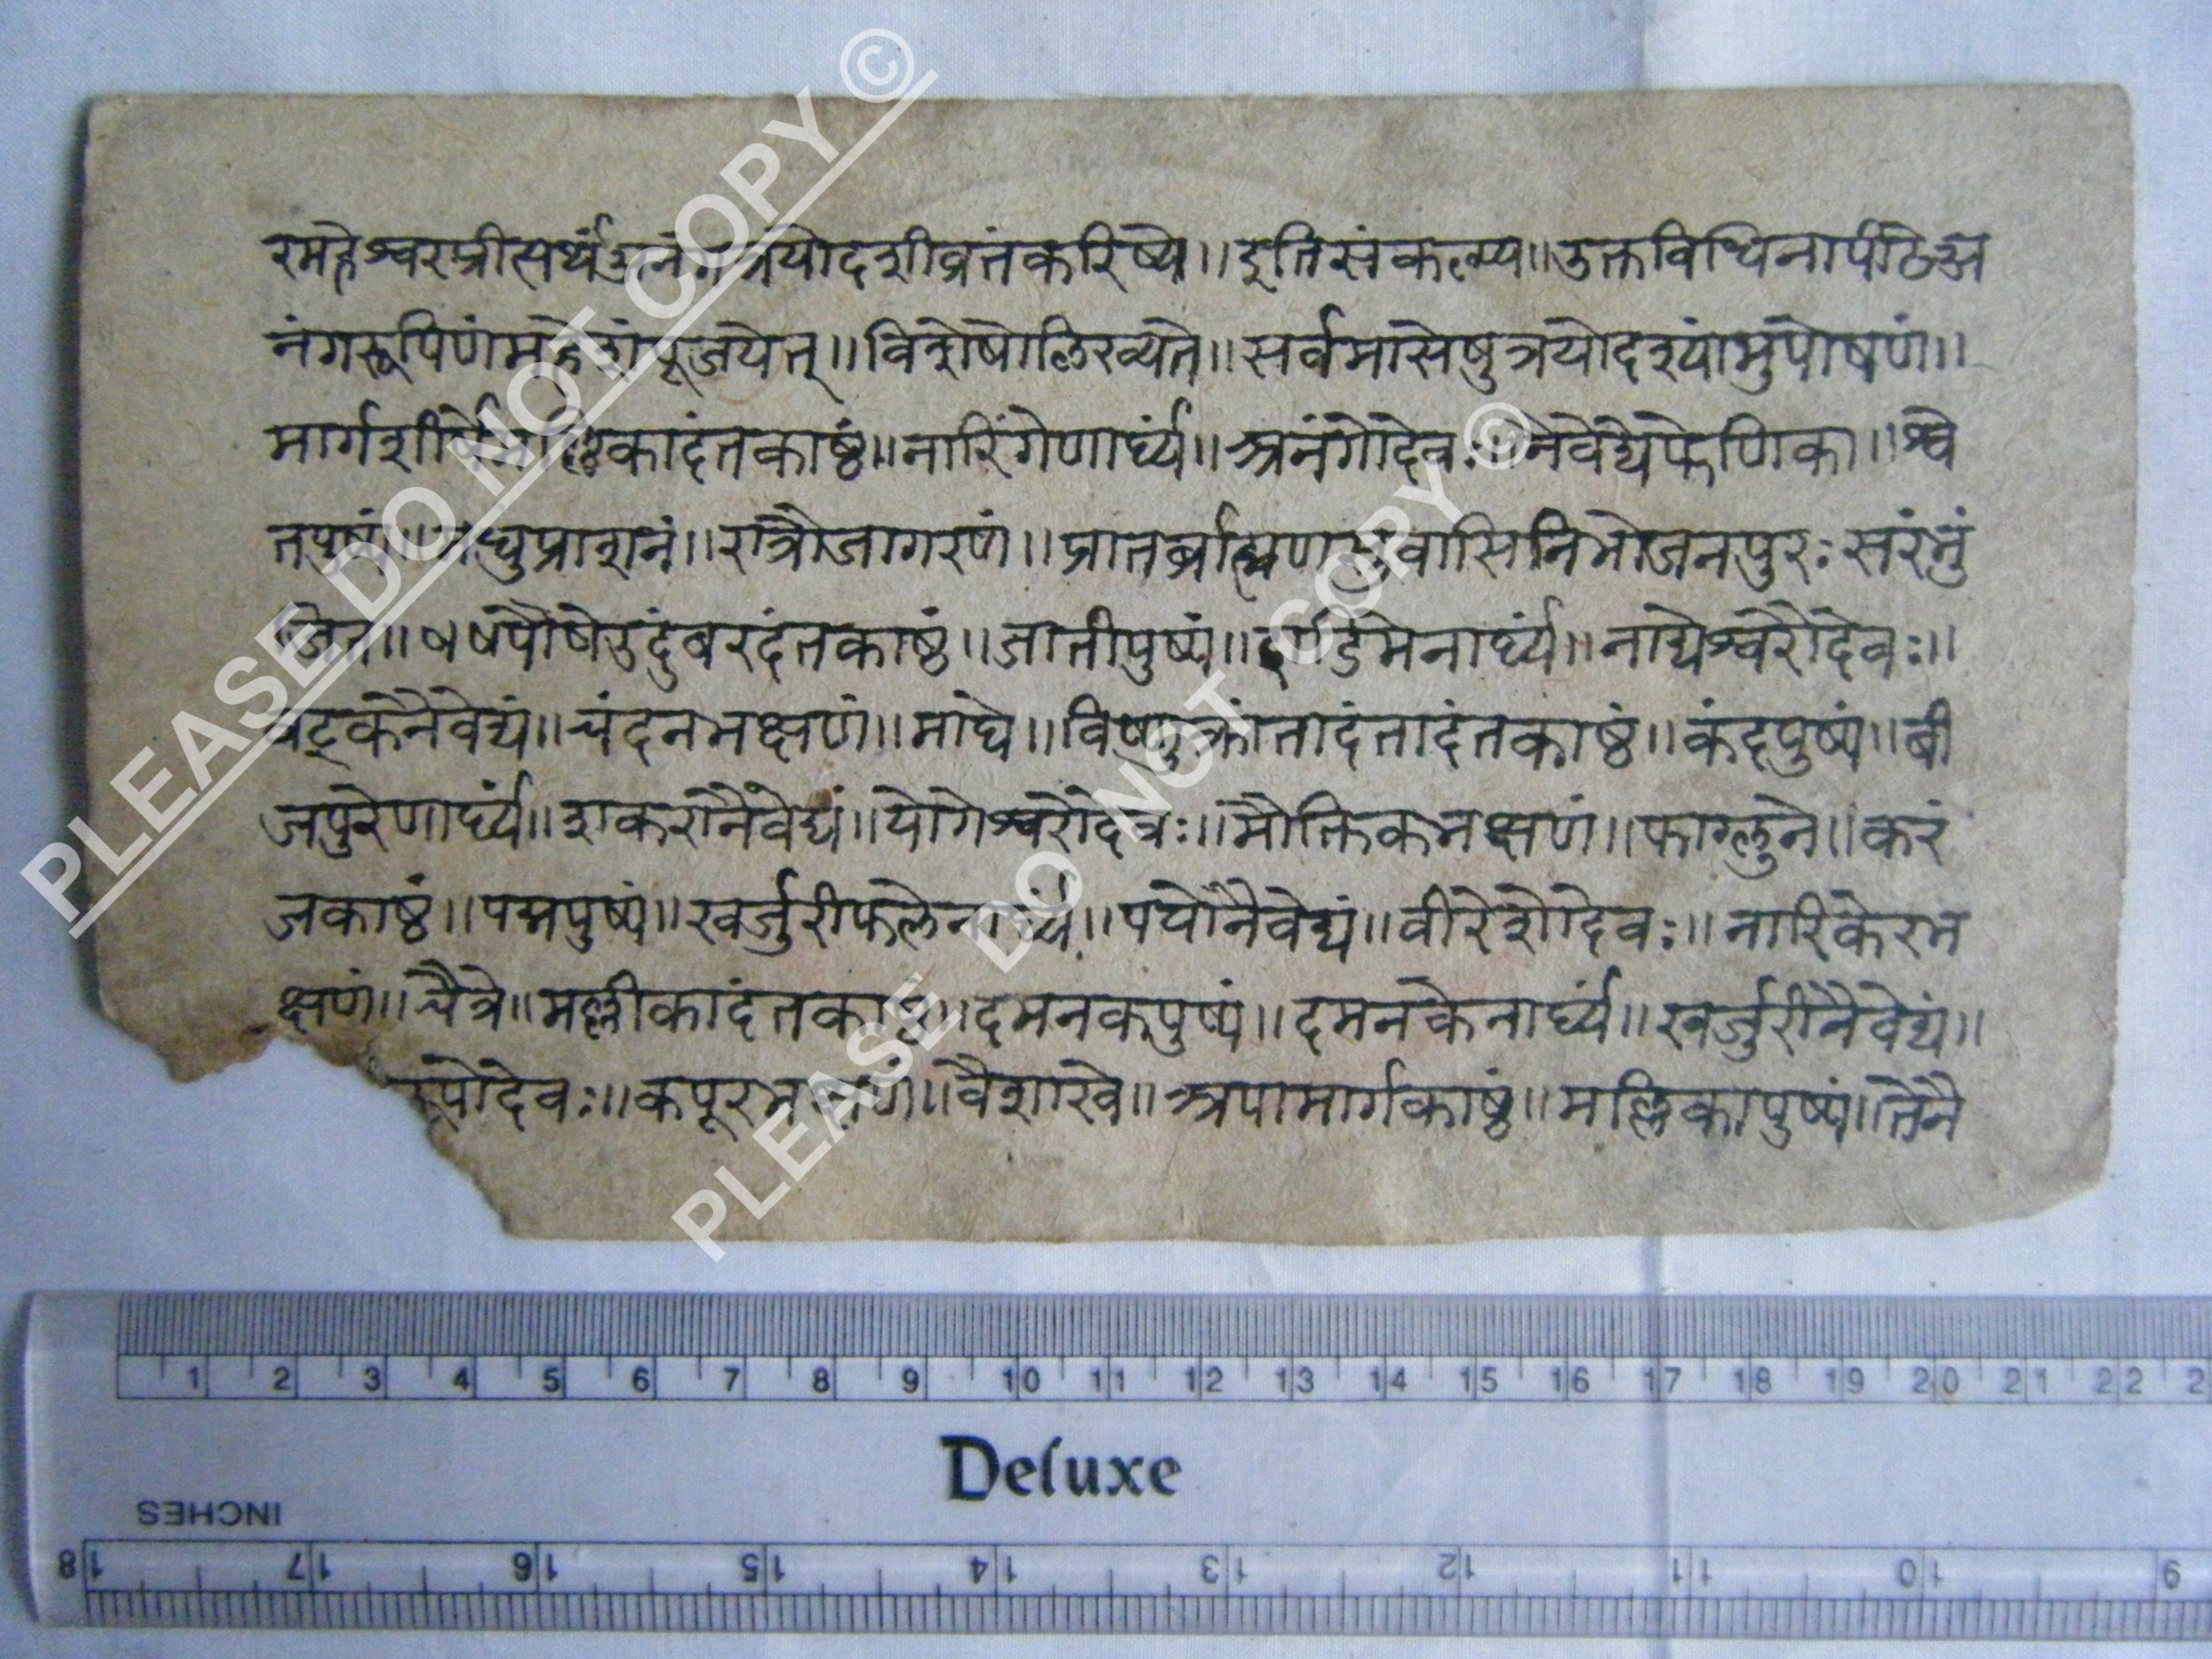 रमहेश्वरप्रीत्यर्थंअनंगत्रयोदशीव्रतंकरिष्ये॥इतिसंकल्प्य॥उक्तविधिनापीठेअ
नंगरूपिणंमहेशंपूजयेत्॥विशेषोलिख्यते॥सर्वमासेषुत्रयोदश्यांमुपोषणं॥
मार्गशीर्षे कादंतकाष्ठं॥नारिंगेणार्घ्यं॥अनंगोदेवः॥नैवेद्येफेणिका॥श्वे
तपुष्पं॥मधुप्राशनं॥रात्रौजागरणं॥प्रातर्ब्राह्मणसुवासिनिभोजनपुरःसरंभुं
जित॥ पौषेउदुंबरदंतकाष्ठं॥जातीपुष्पं॥दाडिमेनार्घ्यं॥नाट्येश्वरोदेवः॥
वटकनैवेद्यं॥चंदनभक्षणं॥माघे॥विष्णुक्रांतादंतादंतकाष्ठं॥कंदपुष्पं॥बी
जपुरेणार्घ्यं॥शकरानैवेद्यं॥योगेश्वरोदेवः॥मौक्तिकभक्षणं॥फाल्गुने॥करं
जकाष्ठं॥पद्मपुष्पं॥खर्जुरीफलेनार्घ्यं॥पयोनैवेद्यं॥वीरेशोदेवः॥नारिकेरभ
क्षणं॥चैत्रे॥मल्लीकादंतकाष्ठं॥दमनकपुष्पं॥दमनकेनार्घ्यं॥खर्जुरीनैवेद्यं॥
रूपोदेवः॥कपूरभक्षणं॥वैशाखे॥अपामार्गकाष्ठं॥मल्लिकापुष्पं॥तेनै
PLEASE DO NOT COPY ©
PLEASE DO NOT COPY ©
1 2 3 4 5 6 7 8 9 10 11 12 13 14 15 16 17 18 19 20 21 22 2
Deluxe
INCHES
18 17 16 15 14 13 12 11 10 9